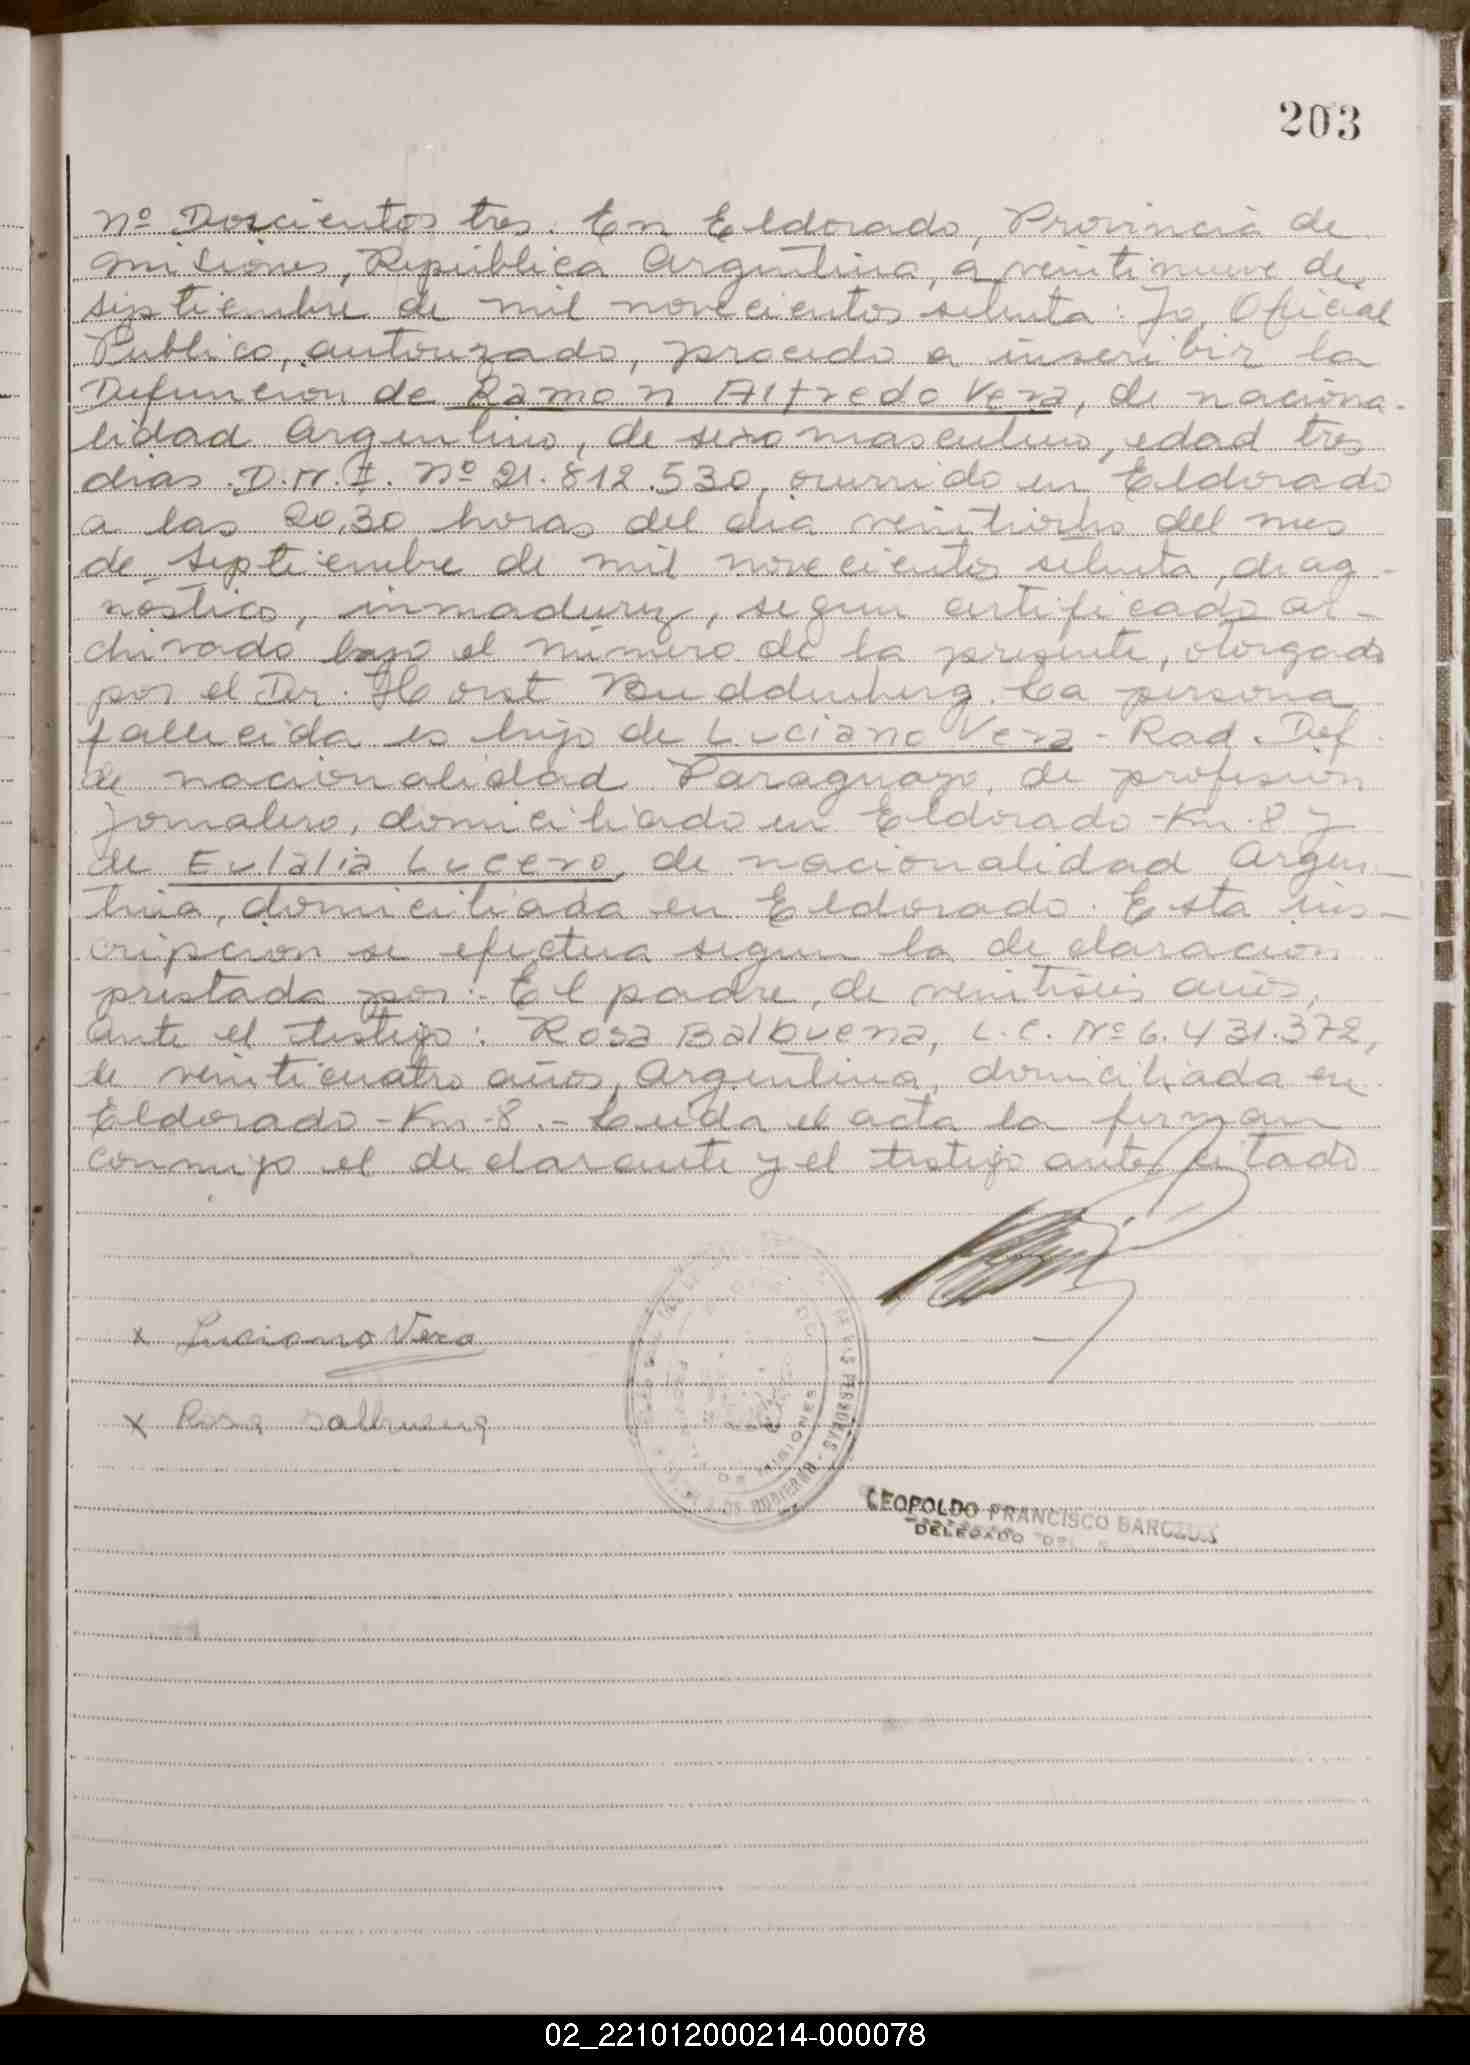 203
Nº Doscientos tres. En Eldorado, Provincia de
Misiones, República Argentina, a veintinueve de
septiembre de mil novecientos setenta: Yo, Oficial
Publico, autorizado, procedo a inscribir la
Defuncion de Ramon Alfredo Vera, de naciona-
lidad Argentino, de sexo masculino, edad tres
dias. D.N.I. Nº 21.812.530, ocurrido en Eldorado
a las 20,30 horas del dia veintiocho del mes
de septiembre de mil novecientos setenta, diag-
nostico, inmadurez, segun certificado ar-
chivado bajo el número de la presente, otorgado
por el Dr. Horst Buddenberg. La persona
fallecida es hijo de Luciano Vera - Rad. Def.
de nacionalidad Paraguayo, de profesion
Jornalero, domiciliado en Eldorado - Km. 8 y
de Eulalia Lucero, de nacionalidad Argen-
tina, domiciliada en Eldorado. Esta ins-
cripcion se efectua segun la declaracion
prestada por: El padre, de veintiseis años,
ante el testigo: Rosa Balbuena, L.C. Nº 6.431.372,
de veinticuatro años, Argentina, domiciliada en
Eldorado - Km - 8. - Leida el acta la firman
conmigo el declarante y el testigo antes citado
x Luciano Vera
x Rosa Balbuena
DE LAS PERSONAS
DE MISIONES
DE GOBIERNO
LEOPOLDO FRANCISCO
DELEGADO
02_221012000214-000078